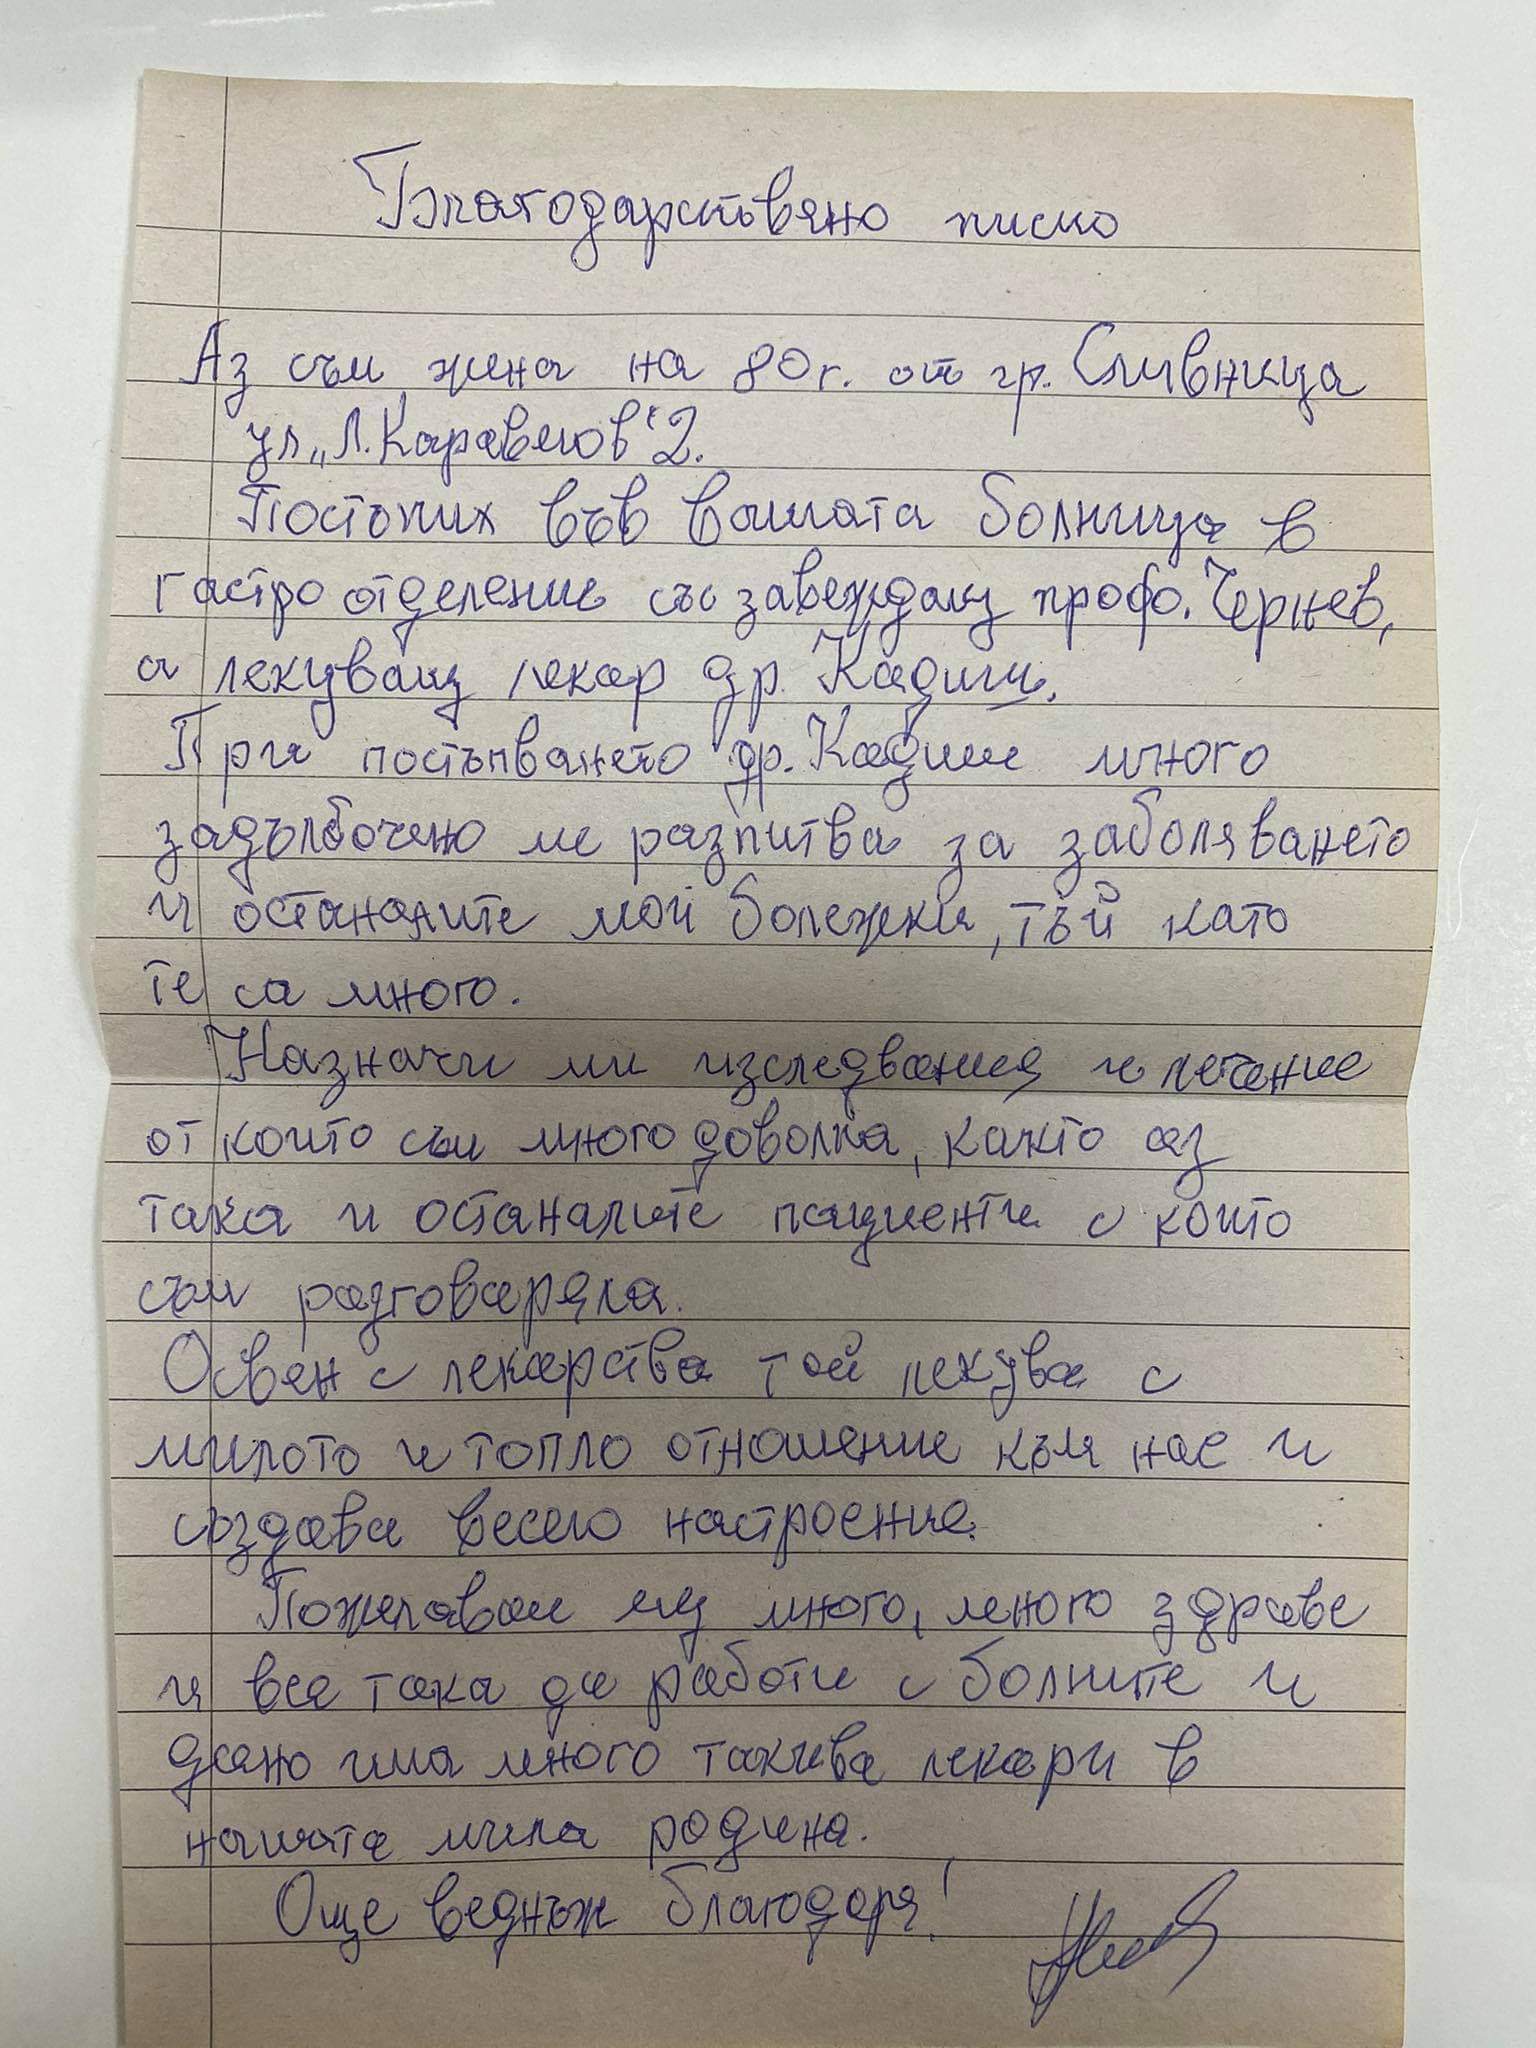 Благодарствяно писмо
Аз съм жена на 80 г. от гр. Сливница
ул. „Л. Каравелов“ 2.
Постъпих във вашата болница в
гастро отделение със завеждащ профо. Чернев,
а лекуващ лекар др. Кадиш.
При постъпването др. Кадиш много
задълбочено ме разпитва за заболяването
и останалите мои болежки, тъй като
те са много.
Назначи ми изследвания и лечение
от които съм много доволна, както аз
така и останалите пациенти с които
съм разговаряла.
Освен с лекарства той лекува с
милото и топло отношение към нас и
създава весело настроение.
Пожелавам му много, много здраве
и все така да работи с болните и
дано има много такива лекари в
нашата мила родина.
Още веднъж благодаря!